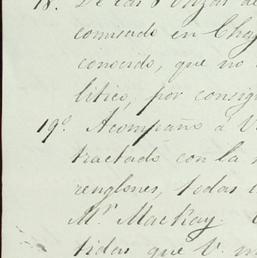 18. De las 8
comisado en Chag
conocido, que no
lítico, por consig
19º. Acompaño á V.
tractado con la
renglones, todas
Mr. MacKay.
tidas que V. m